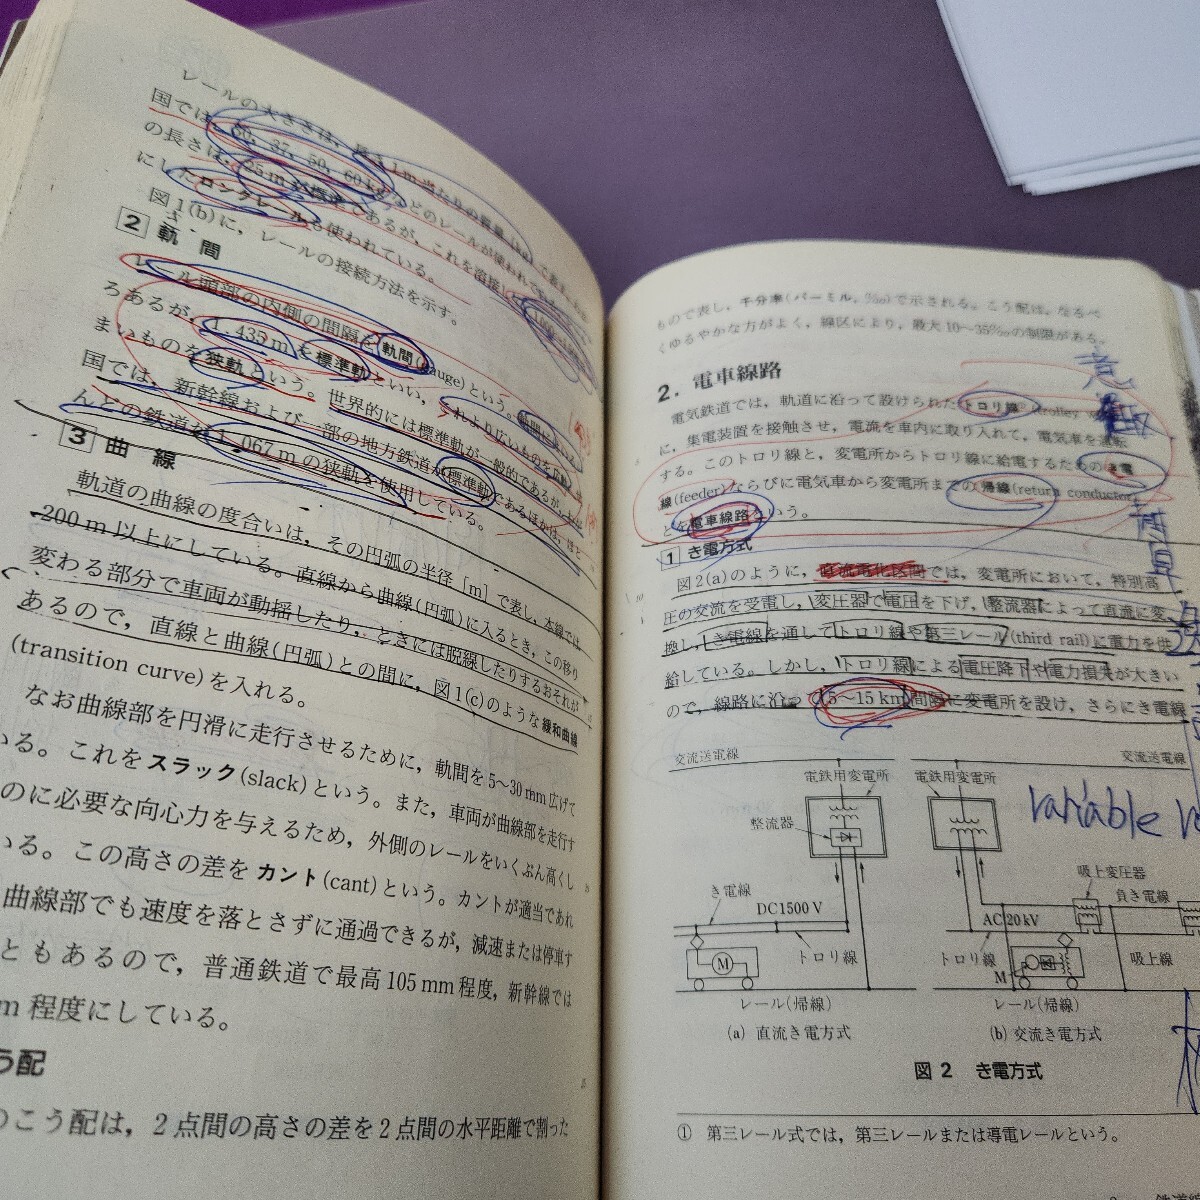 レールの大きさは，長さ1m当たりの質量
国では，30，37，50，60kgなどのレールが使われて
の長さは，25mが標準であるが，これを溶接し
にしたロングレールも使われている。
図1(b)に，レールの接続方法を示す。
2 軌間
レール頭部の内側の間隔を軌間(gauge)という。軌間に
ろあるが，1,435mを標準軌といい，これより広いものを広軌，
まいものを狭軌という。世界的には標準軌が一般的であるが，
国では，新幹線および一部の地方鉄道が標準軌であるほかは，ほと
んどの鉄道が1,067mの狭軌を使用している。
3 曲線
軌道の曲線の度合いは，その円弧の半径〔m〕で表し，本線では
200m以上にしている。直線から曲線(円弧)に入るとき，この移り
変わる部分で車両が動揺したり，ときには脱線したりするおそれが
あるので，直線と曲線(円弧)との間に，図1(c)のような緩和曲線
(transition curve)を入れる。
なお曲線部を円滑に走行させるために，軌間を5～30mm広げて
いる。これをスラック(slack)という。また，車両が曲線部を走行す
のに必要な向心力を与えるため，外側のレールをいくぶん高くし
いる。この高さの差をカント(cant)という。カントが適当であれ
曲線部でも速度を落とさずに通過できるが，減速または停車す
ともあるので，普通鉄道で最高105mm程度，新幹線では
m程度にしている。
う配
のこう配は，2点間の高さの差を2点間の水平距離で割った
もので表し，千分率(パーミル，‰)で示される。こう配は，なるべ
くゆるやかな方がよく，線区により，最大10～35‰の制限がある。
2．電車線路
電気鉄道では，軌道に沿って設けられたトロリ線(trolley
に，集電装置を接触させ，電流を車内に取り入れて，電気車を運転
する。このトロリ線と，変電所からトロリ線に給電するためのき電
線(feeder)ならびに電気車から変電所までの帰線(return conductor)
とを電車線路という。
1 き電方式
図2(a)のように，直流電化区間では，変電所において，特別高
圧の交流を受電し，変圧器で電圧を下げ，整流器によって直流に変
換し，き電線を通してトロリ線や第三レール(third rail)に電力を供
給している。しかし，トロリ線による電圧降下や電力損失が大きい
ので，線路に沿って5～15km間隔に変電所を設け，さらにき電線
交流送電線
交流送電線
電鉄用変電所
電鉄用変電所
整流器
variable
吸上変圧器
き電線
負き電線
DC1500V
AC20kV
トロリ線
トロリ線
吸上線
M
M
レール(帰線)
レール(帰線)
(a) 直流き電方式
(b) 交流き電方式
図2 き電方式
① 第三レール式では，第三レールまたは導電レールという。